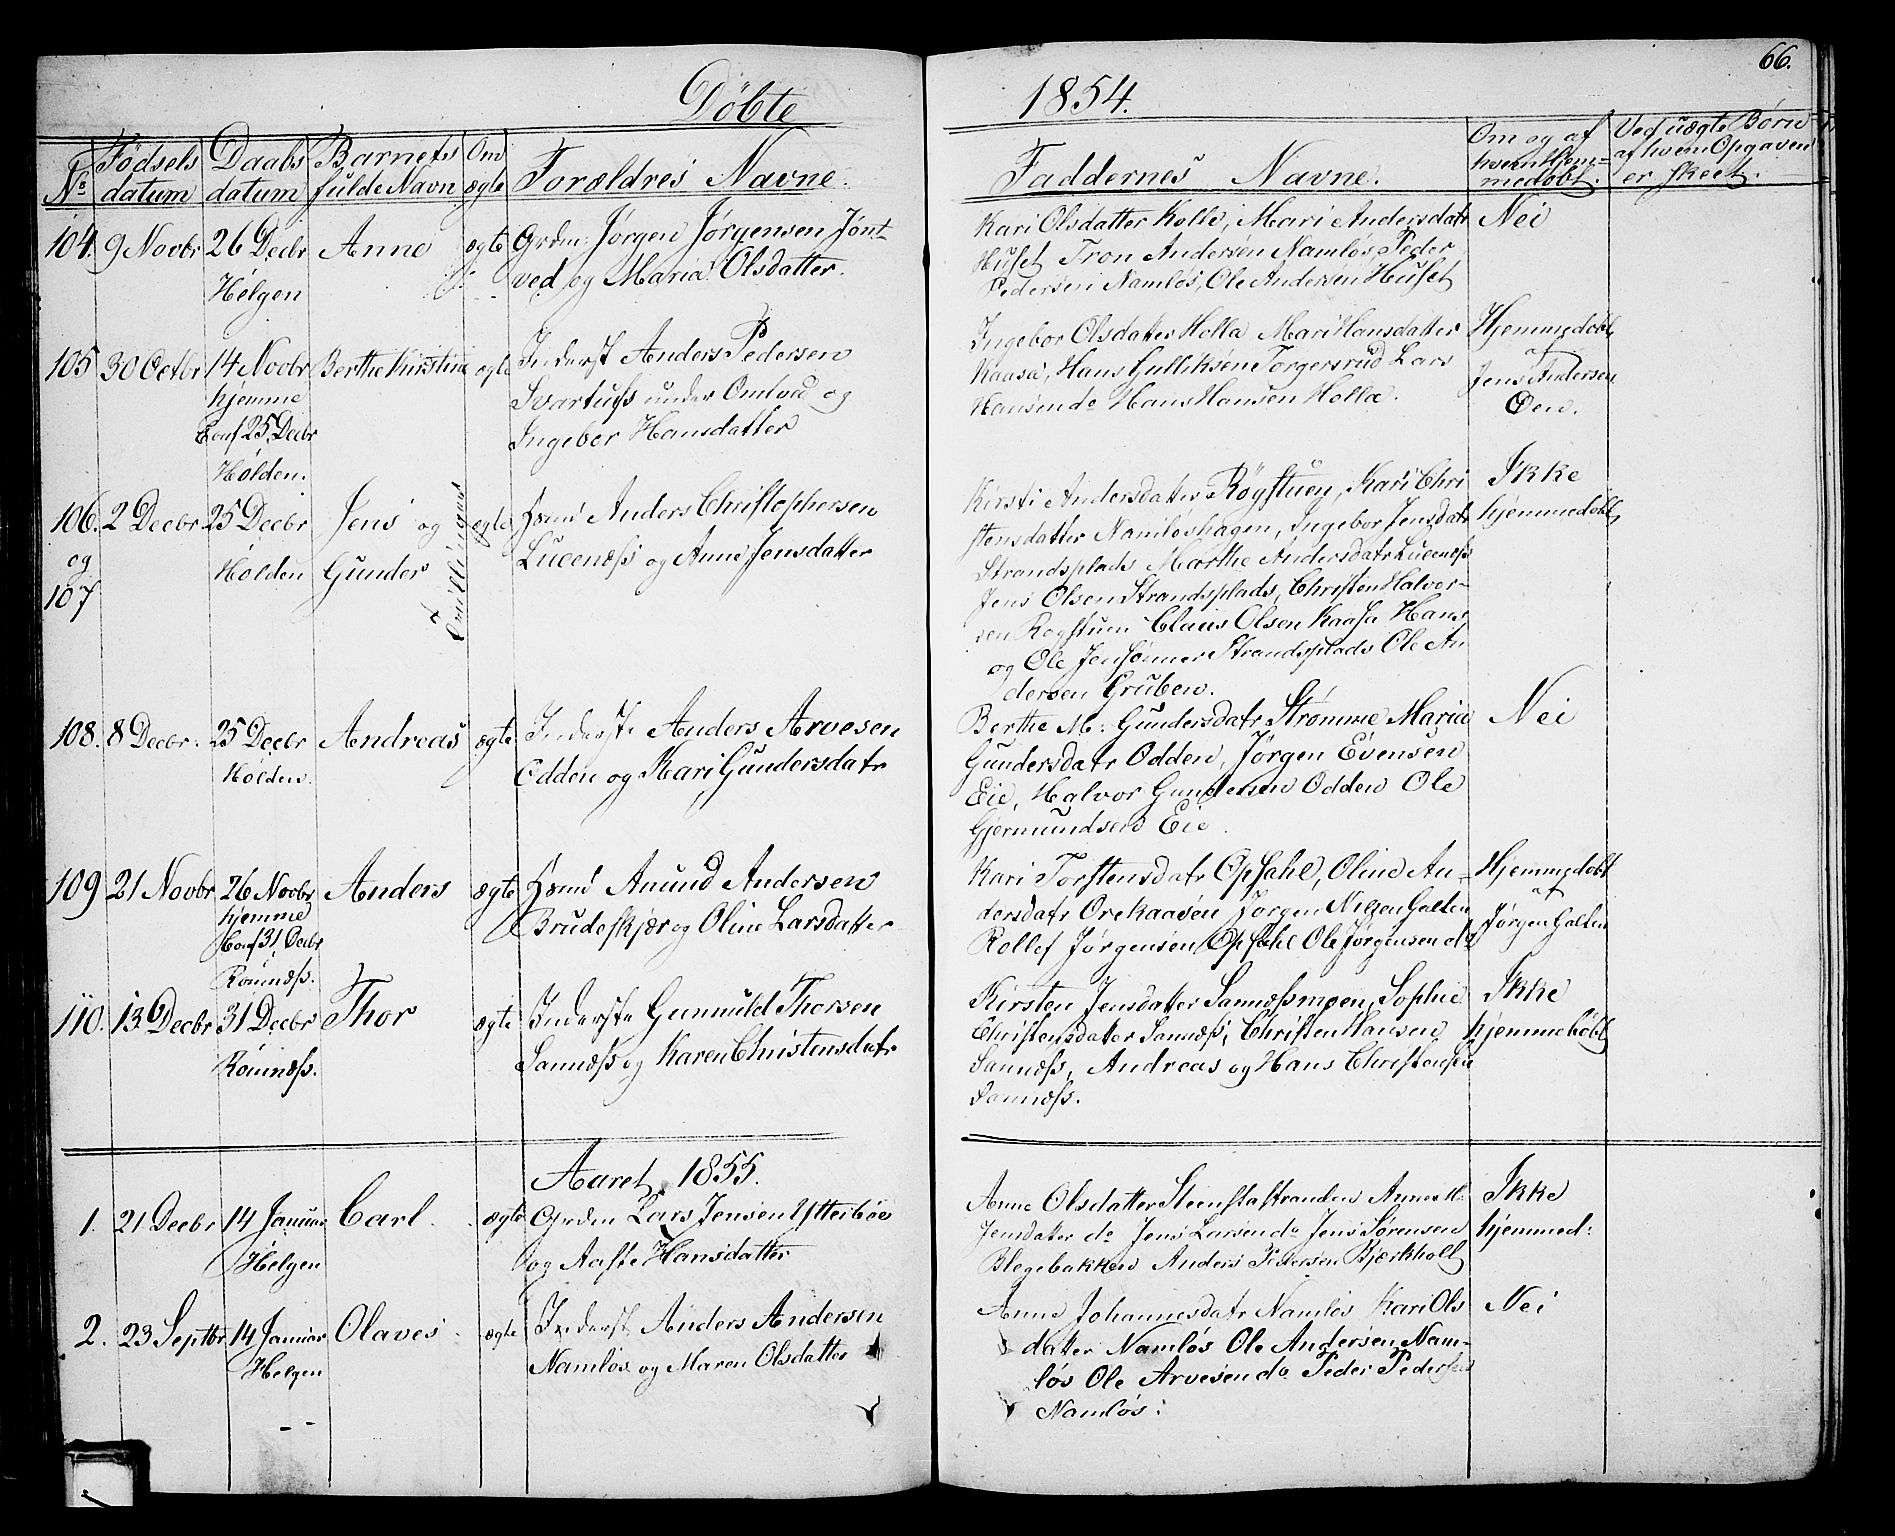 66.
Döbte
1854.
No
Födsels
datum
Daabs
datum
Barnets
fulde Navn
Om
ægte
Forældres Navne.
Faddernes Navne.
Om og af
hvem Hjem=
medöbt.
Ved uægte Börn
af hvem Opgaven
er skeet.
104. 9 Novbr 26 Decbr Anne ægte Grdm: Jörgen Jörgensen Jönt-
Helgen
ved og Maria Olsdatter.
Kari Olsdatter Kolle, Mari Andersdatr Nei
Huset Tron Andersen Namlös, Peder
Pedersen Namlös, Ole Andersen Huset
105 30 Octbr 14 Novbr Berthe Kirstine ægte Inderst Anders Pedersen
hjemme
Conf 25 Decbr
Holden.
under Omtved og
Ingebor Hansdatter
Ingebor Olsdatter Holla Mari Hansdatter
Kaasa, Hans Gulliksen Torgersrud Lars
Hansen do Hans Hansen Holla.
Hjemmedöbt
af
Jens Andersen
Öen.
106. 2 Decbr 25 Decbr Jens og ægte Anders Christophersen
og
107
Holden Gunder
Tvillinger
Lucenæss og Anne Jensdatter
Kirsti Andersdatter Röystuen, Kari Chri
stensdatter Namlöshagen, Ingebor Jensdatr
Strandsplads Marthe Andersdatr Lucenæss
Jens Olsen Strandsplads, Christen Halvor-
sen Roystuen Claus Olsen Kaasa Hans
og Ole Jensönner Strandsplads Ole An
dersen Gruben.
Ikke
hjemmedöbt
108. 8 Decbr. 25 Decbr Andreas ægte Inderste Anders Arvesen
Holden.
Odden og Kari Gundersdatr
Berthe M: Gundersdatr Strömme Maria Nei
Gundersdatr Odden, Jörgen Evensen
Eie, Halvor Gundersen Odden Ole
Gjermundsen Eie.
109 21 Novbr 26 Novbr Anders ægte Anund Andersen
hjemme
Conf 31 Decbr
Romnæss.
Brudeskjær og Oline Larsdatter
Kari Torstensdatr Opsahl, Oline An-
dersdatr Orekaasen Jörgen Nilsen Galten
Rollef Jörgensen Opsahl Ole Jörgensen do
Hjemmedöbt
af
Jörgen Galten
110. 13 Decbr 31 Decbr Thor ægte Inderste Gunnuld Thorsen
Romnæss.
Sannæss og Karen Christensdatr
Kirsten Jensdatter Sannæssmoen, Sophie
Christensdatter Sannæss, Christen Hansen
Sannæss, Andreas og Hans Christensen
Sannæss.
Ikke
hjemmedöbt
Aaret 1855.
1. 21 Decbr 14 Januar Carl. ægte Grdm Lars Jensen Ytterböe
Helgen
og Aaste Hansdatter
Anne Olsdatter Steenstastranden Anne M:
Jensdatter do Jens Larsen do Jens Sörensen
Blegebakken Anders Pedersen Bjerkholt
Ikke
hjemmed:
2. 23 Septbr 14 Januar Olaves ægte Inderst Anders Andersen
Helgen
Namlös og Maren Olsdatter
Anne Johannesdatr Namlös Kari Ols Nei
datter Namlös Ole Andersen Nam-
lös Ole Arvesen do Peder Pedersen
Namlös: